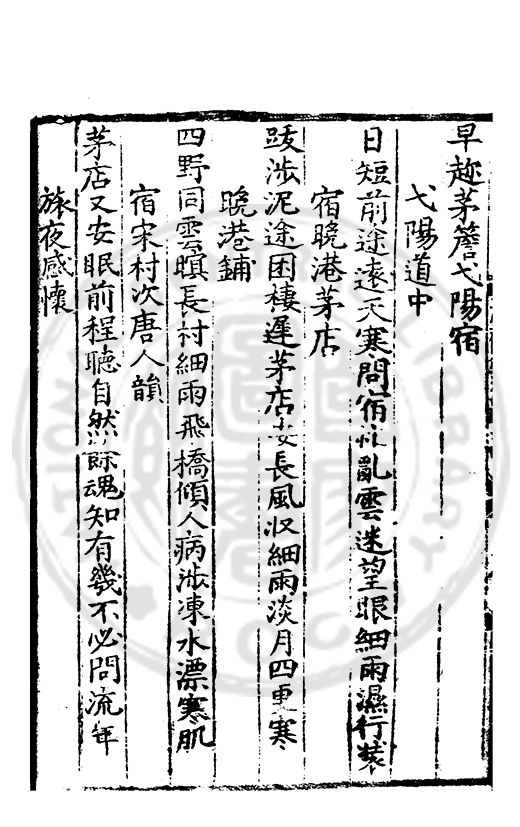 早趂茅簷弋陽宿
弋陽道中
日短前途遠天寒問宿亂雲迷望眼細雨濕行裝
宿晚港茅店
跋涉泥途困棲遲茅店安長風收細雨淡月四更寒
晚港鋪
四野同雲暝長村細雨飛橋傾人病涉凍水漂寒肌
宿宋村次唐人韻
茅店又安眠前程聽自然餘魂知有幾不必問流年
旅夜感懷